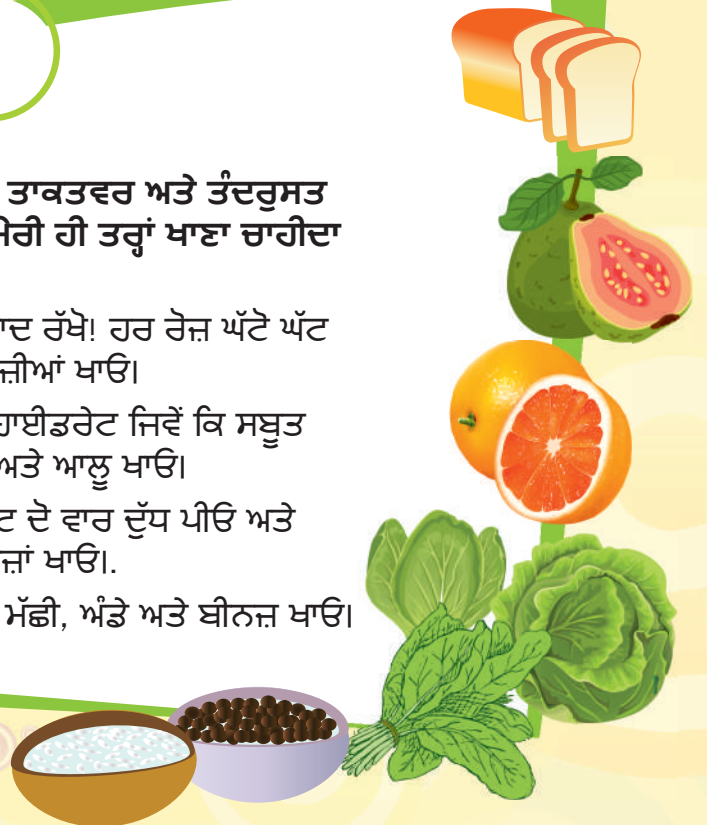 ਤਾਕਤਵਰ ਅਤੇ ਤੰਦਰੁਸਤ
ਹੀ ਤਰ੍ਹਾਂ ਖਾਣਾ ਚਾਹੀਦਾ
ਰੱਖੋ! ਹਰ ਰੋਜ਼ ਘੱਟੋ ਘੱਟ
ਖਾਓ।
ਜਿਵੇਂ ਕਿ ਸਬੂਤ
ਅਤੇ ਆਲੂ ਖਾਓ।
ਦੋ ਵਾਰ ਦੁੱਧ ਪੀਓ ਅਤੇ
ਖਾਓ।.
ਮੱਛੀ, ਅੰਡੇ ਅਤੇ ਬੀਨਜ਼ ਖਾਓ।